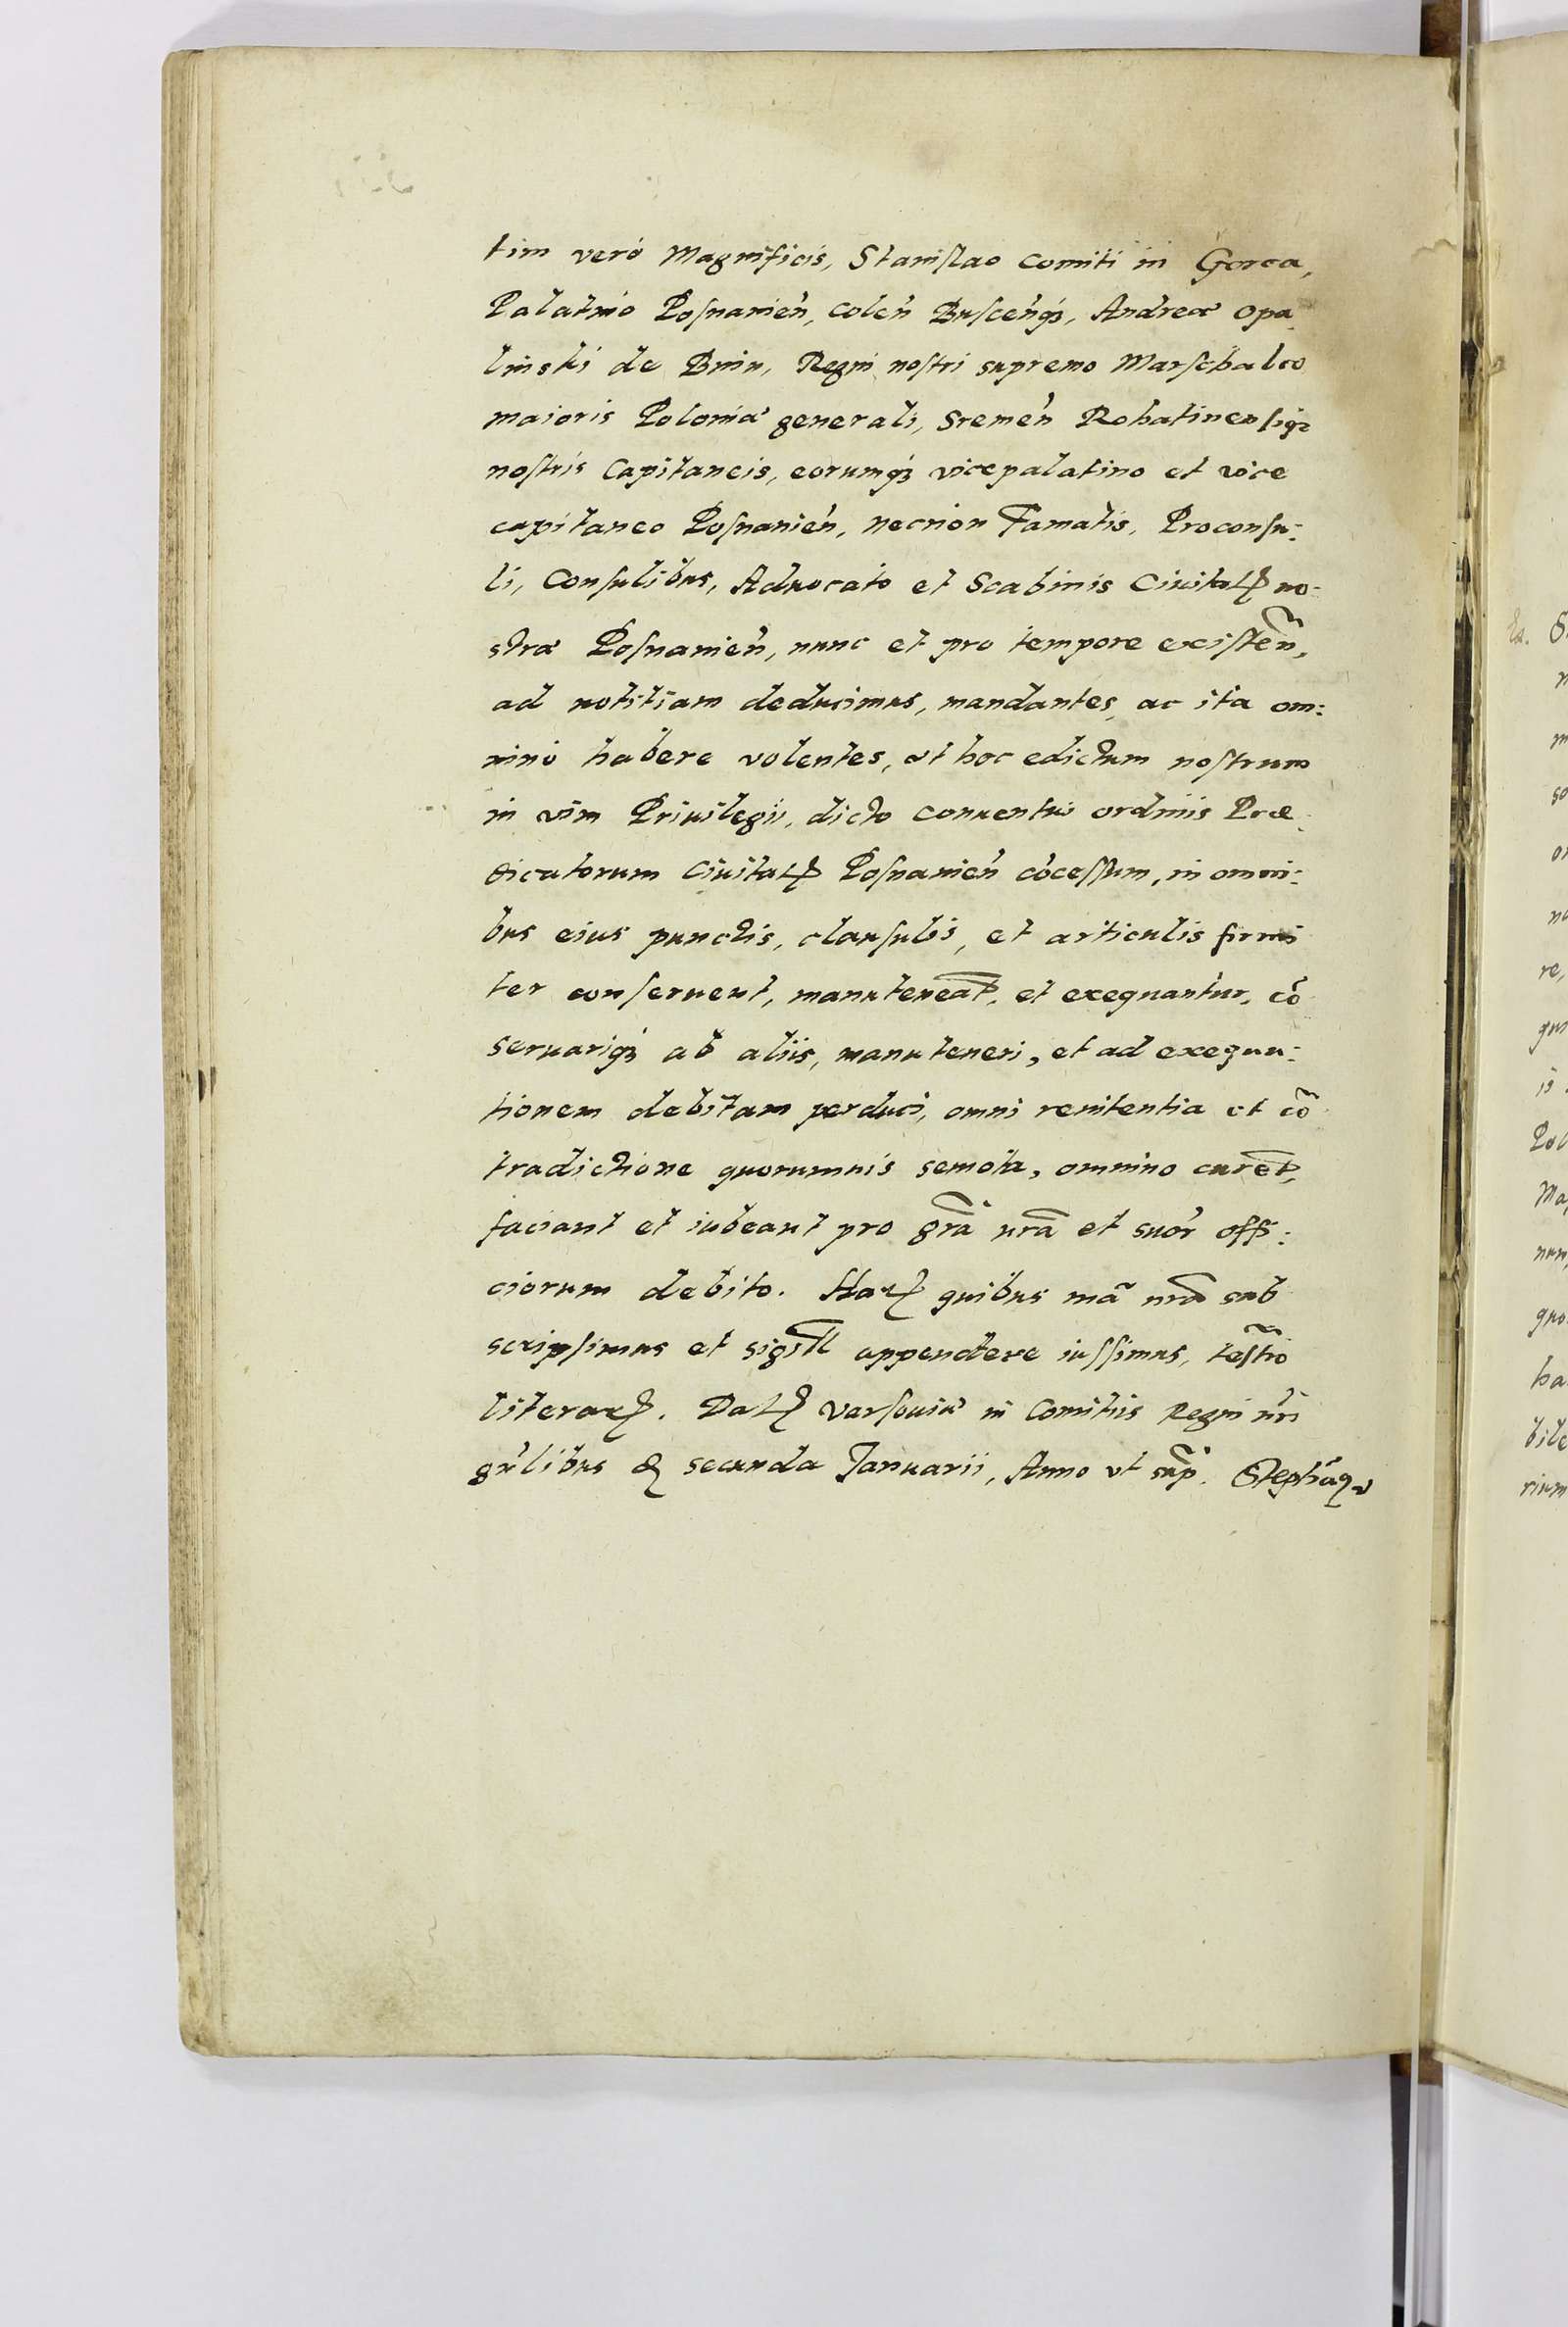 tim verò Magnificis, Stanislao Comiti in Gorca,
Palatino Posnanień, Coleń Buscenq́3, Andreæ Opa
linski de Bnin, Regni nostri supremo Marschalco
maioris Poloniæ generali, Sremeń Rohatinensiq3
nostris Capitaneis, eorumq́3 vicepalatino et vice
capitaneo Posnanień, necnon Famatis, Proconsu:
li, Consulibus, Aduocato et Scabinis Ciuitatꝭ no:
stræ Posnanień, nunc et pro tempore existeñ,
ad notitiam deducimus, mandantes, ac ita om:
ninò habere volentes, vt hoc edictum nostrum
in vim Priuilegii, dicto conuentui ordinis Præ:
dicatorum Ciuitatꝭ Posnanień cōcessum, in omni:
bus eius punctis, clausulis, et articulis firmi
ter conseruent, manuteneāt, et exequantur, cō
seruariq́3 ab aliis, manuteneri, et ad exequu:
tionem debitam perduci, omni renitentia et cō
tradictione quorumuis semota, omnino curēt,
faciant et iubeant pro grã nrã et suoŕ offi:
ciorum debito. Harꝭ quibus mã nrã sub
scripsimus et sigill̃ appendere iussimus, testĩo
literarꝭ. Datꝭ Varsouiæ in Comitiis Regni nrĩ
gńlibus & secunda Ianuarii, Anno vt sup̃. Stephãꝯ